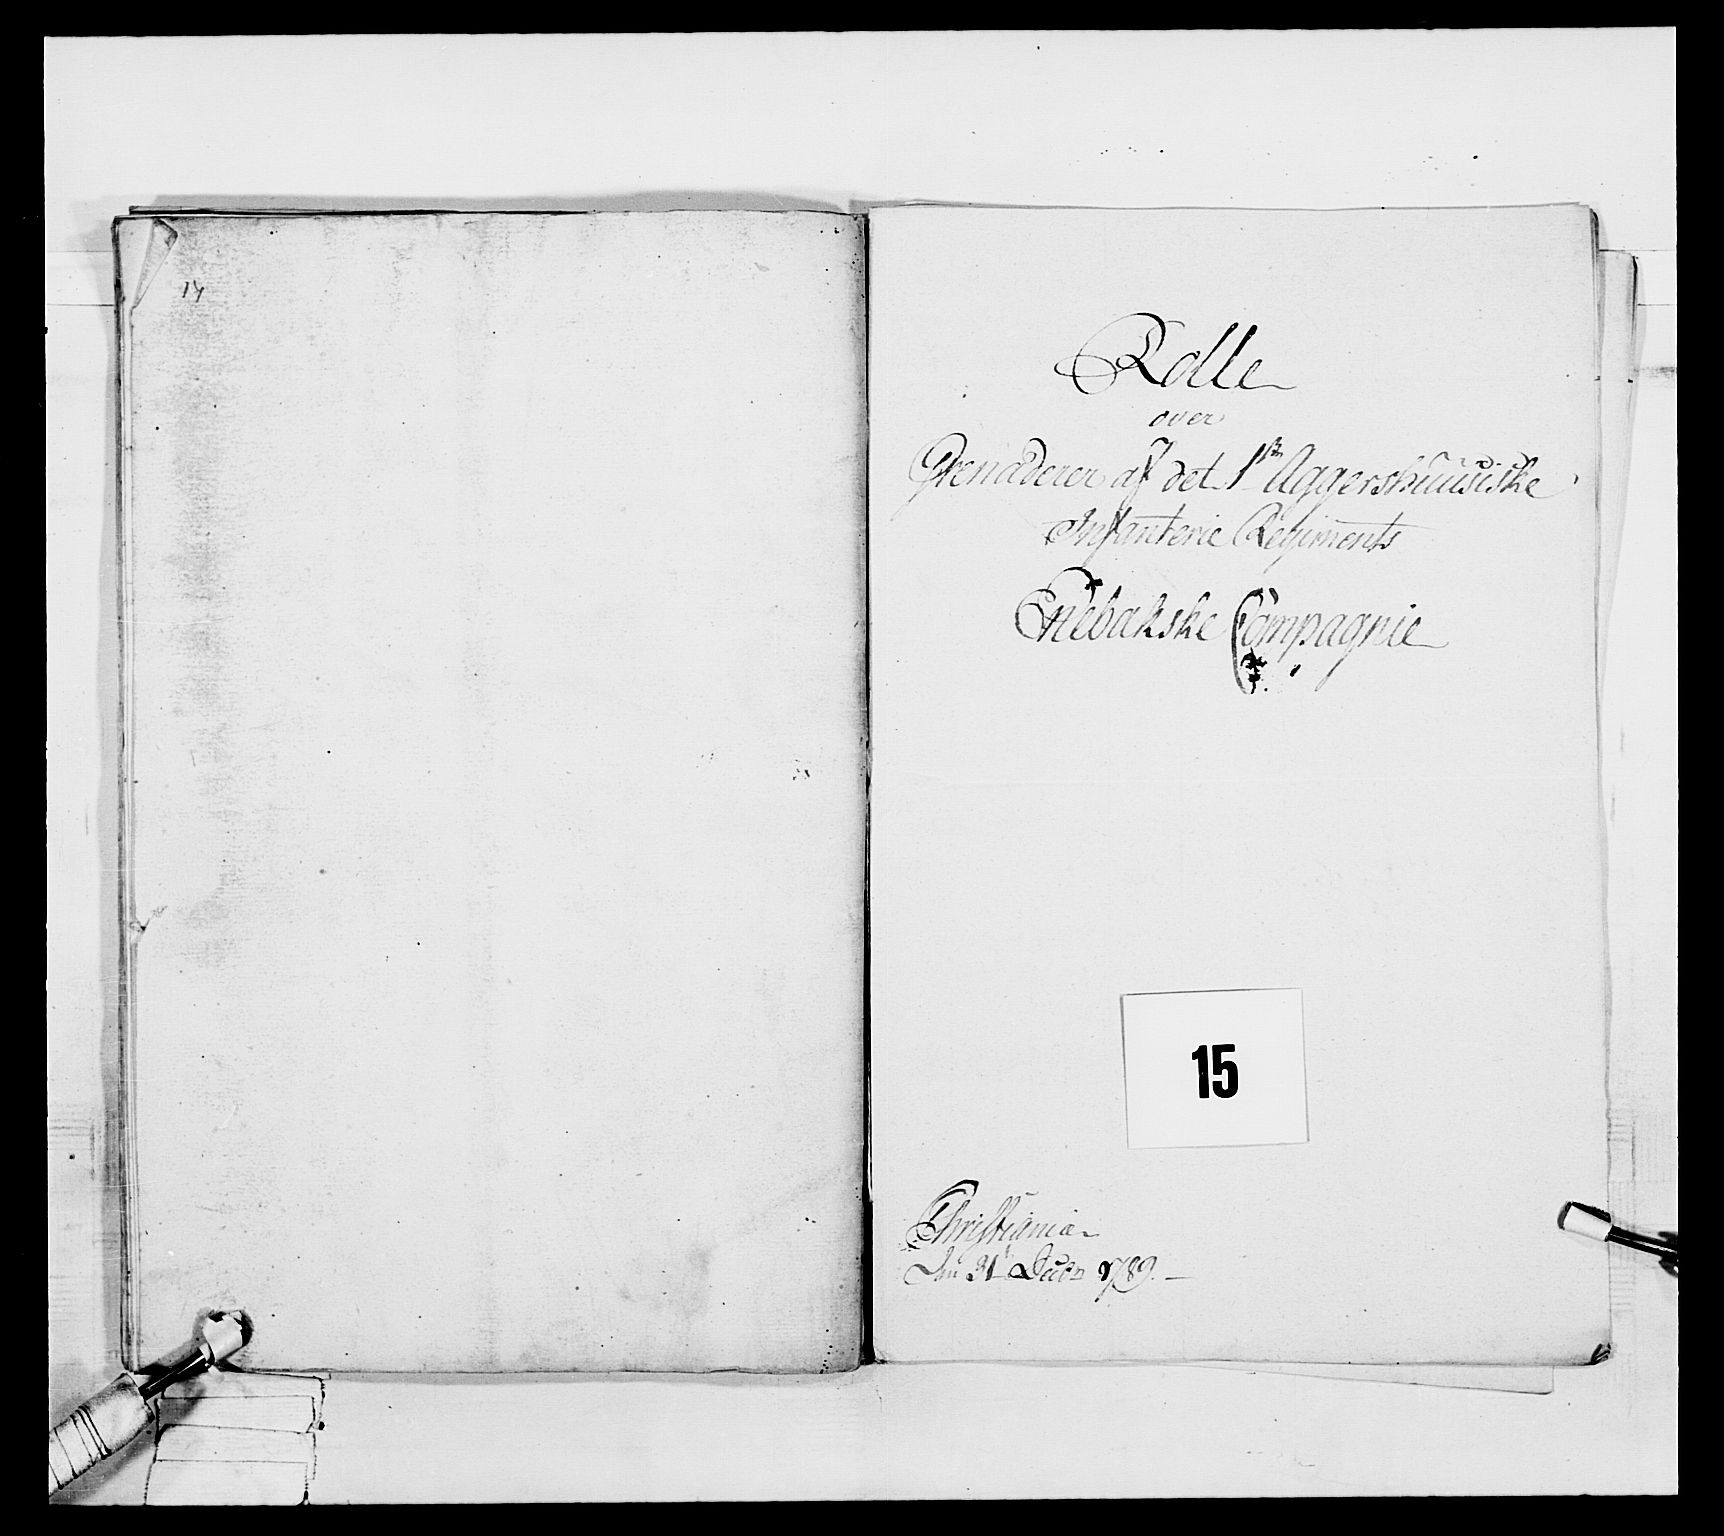 14
Rolle
over
Grenaderer af det 1ste Aggershuusiske
Infanterie Regiments
Enebakske Compagnie
15
Christiania
den 31t Decbr 1789.